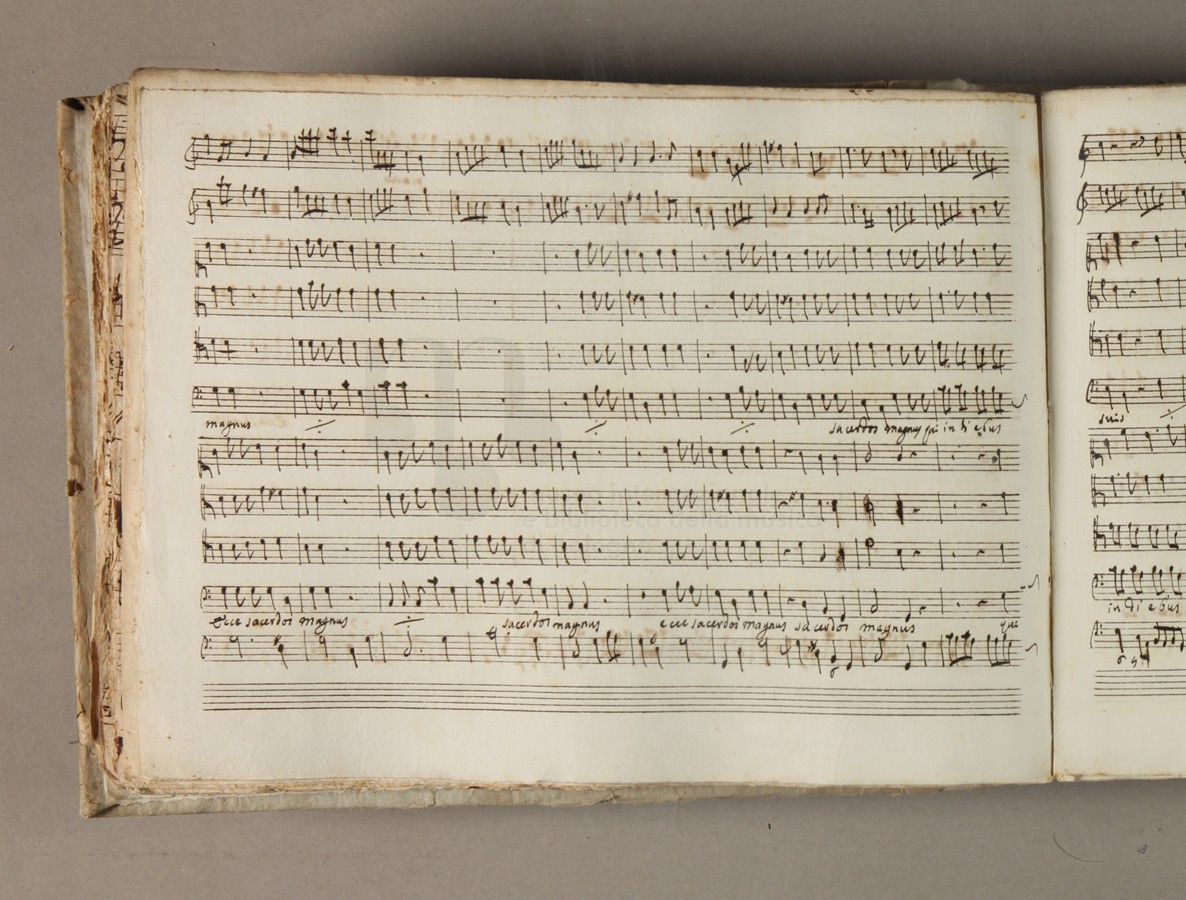 magnus
sacerdos magnus qui in di ebus
Ecce sacerdos magnus sacerdos magnus ecce sacerdos magnus sacerdos magnus qui
suis
in di ebus
e biblioteca della musica